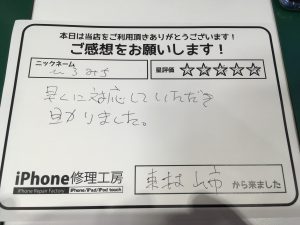 本日は当店をご利用頂きありがとうございます!
ご感想をお願いします!
ニックネーム
ひろみち
星評価 ☆☆☆☆☆
早くに対応していただき
助かりました。
iPhone修理工房
iPhone Repair Factory iPhone/iPad/iPod touch
東村山市 から来ました